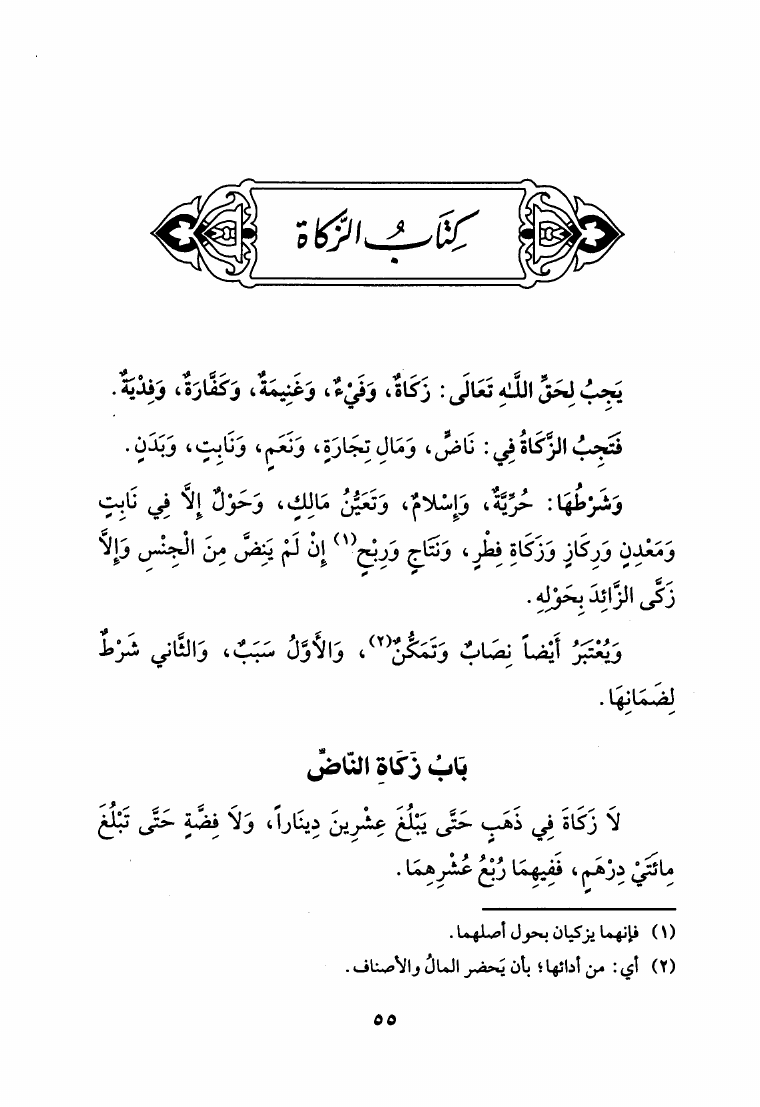 كِتَابُ الزَّكَاة
يَجِبُ لِحَقِّ اللَّـٰهِ تَعَالَى: زَكَاةٌ، وَفَيْءٌ، وَغَنِيمَةٌ، وَكَفَّارَةٌ، وَفِدْيَةٌ.
فَتَجِبُ الزَّكَاةُ فِي: نَاضٍّ، وَمَالِ تِجَارَةٍ، وَنَعَمٍ، وَنَابِتٍ، وَبَدَنٍ.
وَشَرْطُهَا: حُرِّيَّةٌ، وَإِسْلاَمٌ، وَتَعَيُّنُ مَالِكٍ، وَحَوْلٌ إِلاَّ فِي نَابِتٍ
وَمَعْدِنٍ وَرِكَازٍ وَزَكَاةِ فِطْرٍ، وَنَتَاجٍ وَرِبْحٍ(١) إِنْ لَمْ يَنِضَّ مِنَ الْجِنْسِ وَإِلاَّ
زَكَّى الزَّائِدَ بِحَوْلِهِ.
وَيُعْتَبَرُ أَيْضاً نِصَابٌ وَتَمَكُّنٌ(٢)، وَالأَوَّلُ سَبَبٌ، وَالثَّانِي شَرْطٌ
لِضَمَانِهَا.
بَابُ زَكَاةِ النَّاضِّ
لاَ زَكَاةَ فِي ذَهَبٍ حَتَّى يَبْلُغَ عِشْرِينَ دِينَاراً، وَلاَ فِضَّةٍ حَتَّى تَبْلُغَ
مِائَتَيْ دِرْهَمٍ، فَفِيهِمَا رُبْعُ عُشْرِهِمَا.
(١) فإنهما يزكيان بحول أصلهما.
(٢) أي: من أدائها؛ بأن يَحضر المالُ والأصناف.
٥٥